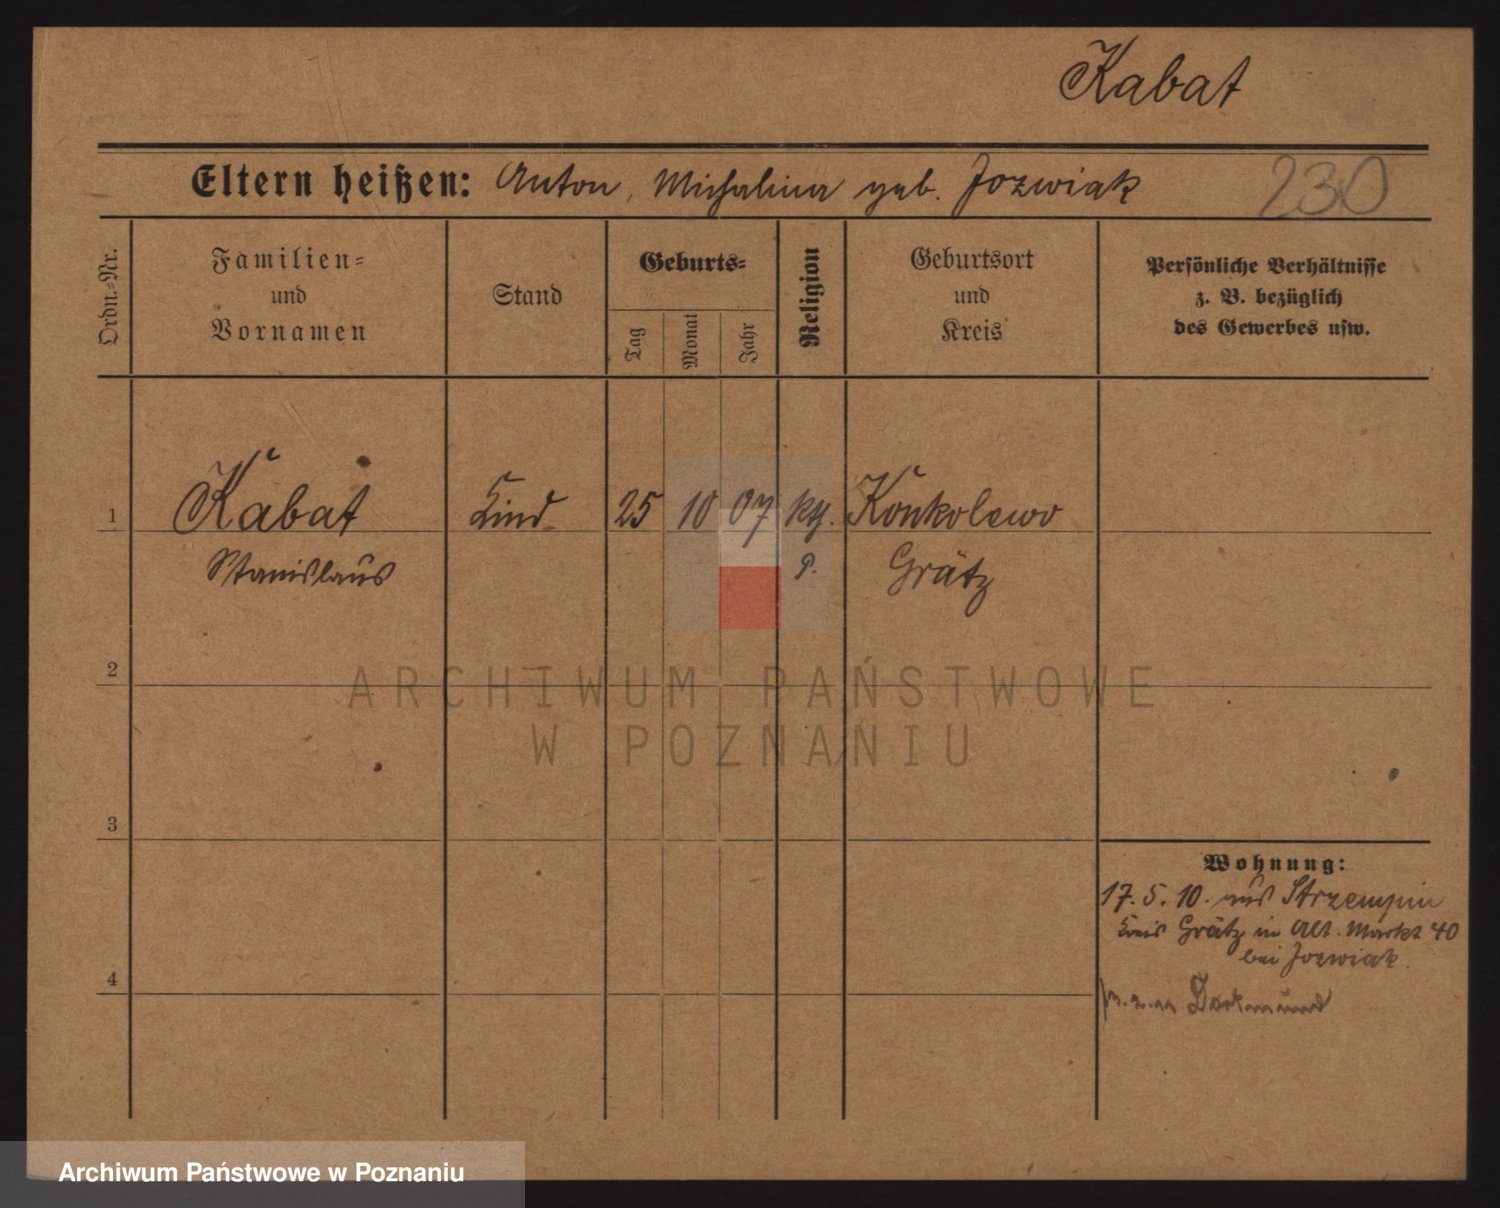 Kabat
Eltern heißen: Anton, Michalina geb. Jozwiak
230
Ordn.-Nr.
Familien-
und
Vornamen
Stand
Geburts-
Tag
Monat
Jahr
Religion
Geburtsort
und
Kreis
Persönliche Verhältnisse
z. B. bezüglich
des Gewerbes usw.
1 Kabat Kind 25 10 07 kth. Konkolewo
Stanislaus P. Grätz
2
ARCHIWUM PAŃSTWOWE
W POZNANIU
3
Wohnung:
17. 5. 10. aus Strzempin
Kreis Grätz in Alt. Markt 40
bei Jozwiak
4
Dortmund
Archiwum Państwowe w Poznaniu